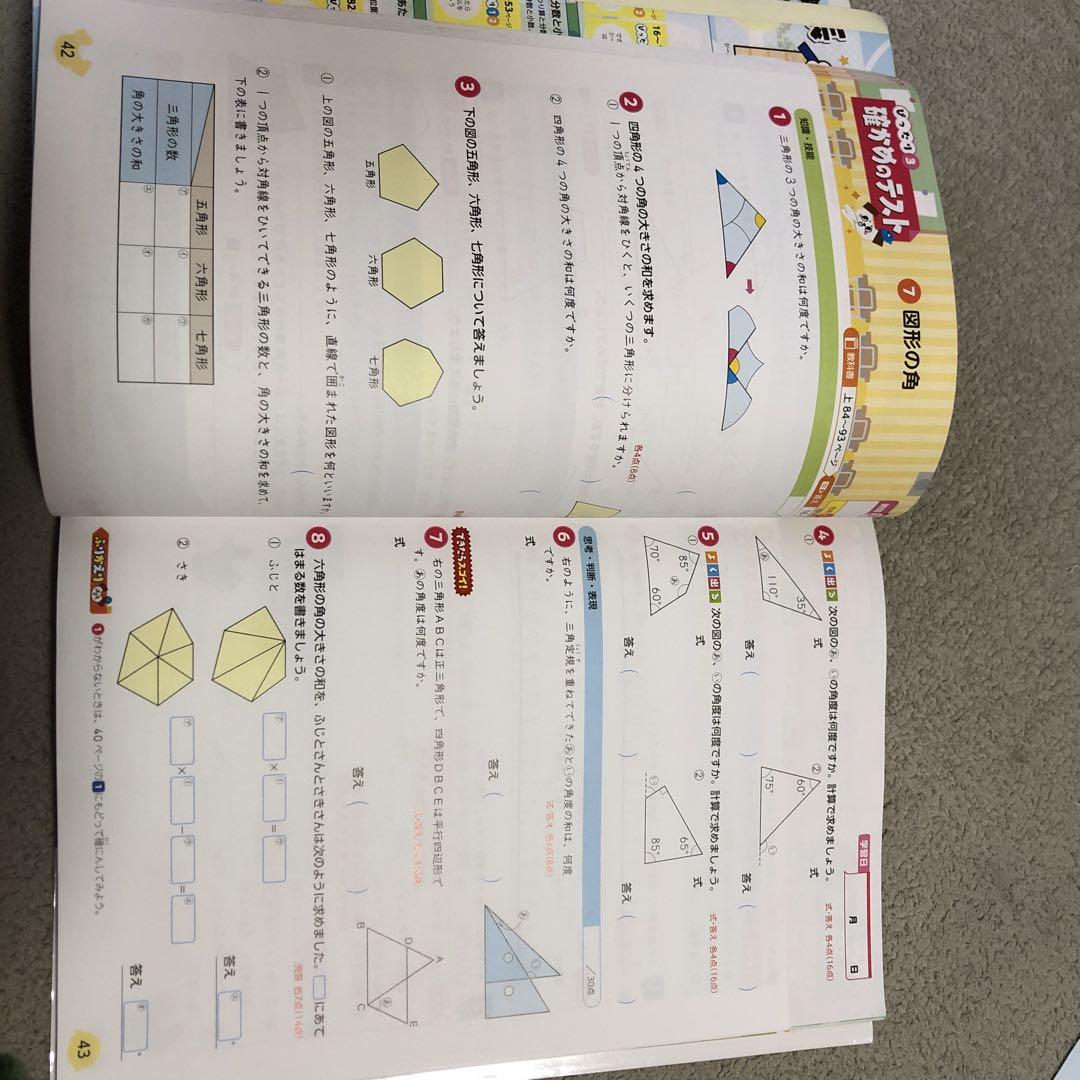 ぴったり3
確かめのテスト
7 図形の角
教科書
上84〜93ページ
知識・技能
1 三角形の3つの角の大きさの和は何度ですか。
2 四角形の4つの角の大きさの和を求めます。
各4点(8点)
① 1つの頂点から対角線をひくと、いくつの三角形に分けられますか。
② 四角形の4つの角の大きさの和は何度ですか。
3 下の図の五角形、六角形、七角形について答えましょう。
五角形
六角形
七角形
① 上の図の五角形、六角形、七角形のように、直線で囲まれた図形を何といいますか。
② 1つの頂点から対角線をひいてできる三角形の数と、角の大きさの和を求めて、
下の表に書きましょう。
五角形 六角形 七角形
三角形の数 ㋐ ㋑ ㋒
角の大きさの和 ㋓ ㋔ ㋕
42
学習日
月 日
4 よく出る 次の図のあ、いの角度は何度ですか。計算で求めましょう。
式・答え 各4点(16点)
① 35° 110° あ
式
答え ( )
② 60° 75° い
式
答え ( )
5 よく出る 次の図のあ、いの角度は何度ですか。計算で求めましょう。
式・答え 各4点(16点)
① 85° あ 70° 60°
式
答え ( )
② い 65° 85°
式
答え ( )
思考・判断・表現
/30点
6 右のように、三角定規を重ねてできたあといの角度の和は、何度
ですか。
式・答え 各4点(8点)
式
あ い
答え ( )
できたらスゴイ!
7 右の三角形ABCは正三角形で、四角形DBCEは平行四辺形で
す。あの角度は何度ですか。
式
A B C D E あ
答え ( )
8 六角形の角の大きさの和を、ふじとさんとさきさんは次のように求めました。□にあて
はまる数を書きましょう。
完答 各7点(14点)
① ふじと
㋐ × ㋑ = ㋒
答え ㋓ °
② さき
㋐ × ㋑ − ㋒ = ㋓
答え ㋔ °
ふりかえり
1 がわからないときは、40ページの1にもどって確にんしてみよう。
43